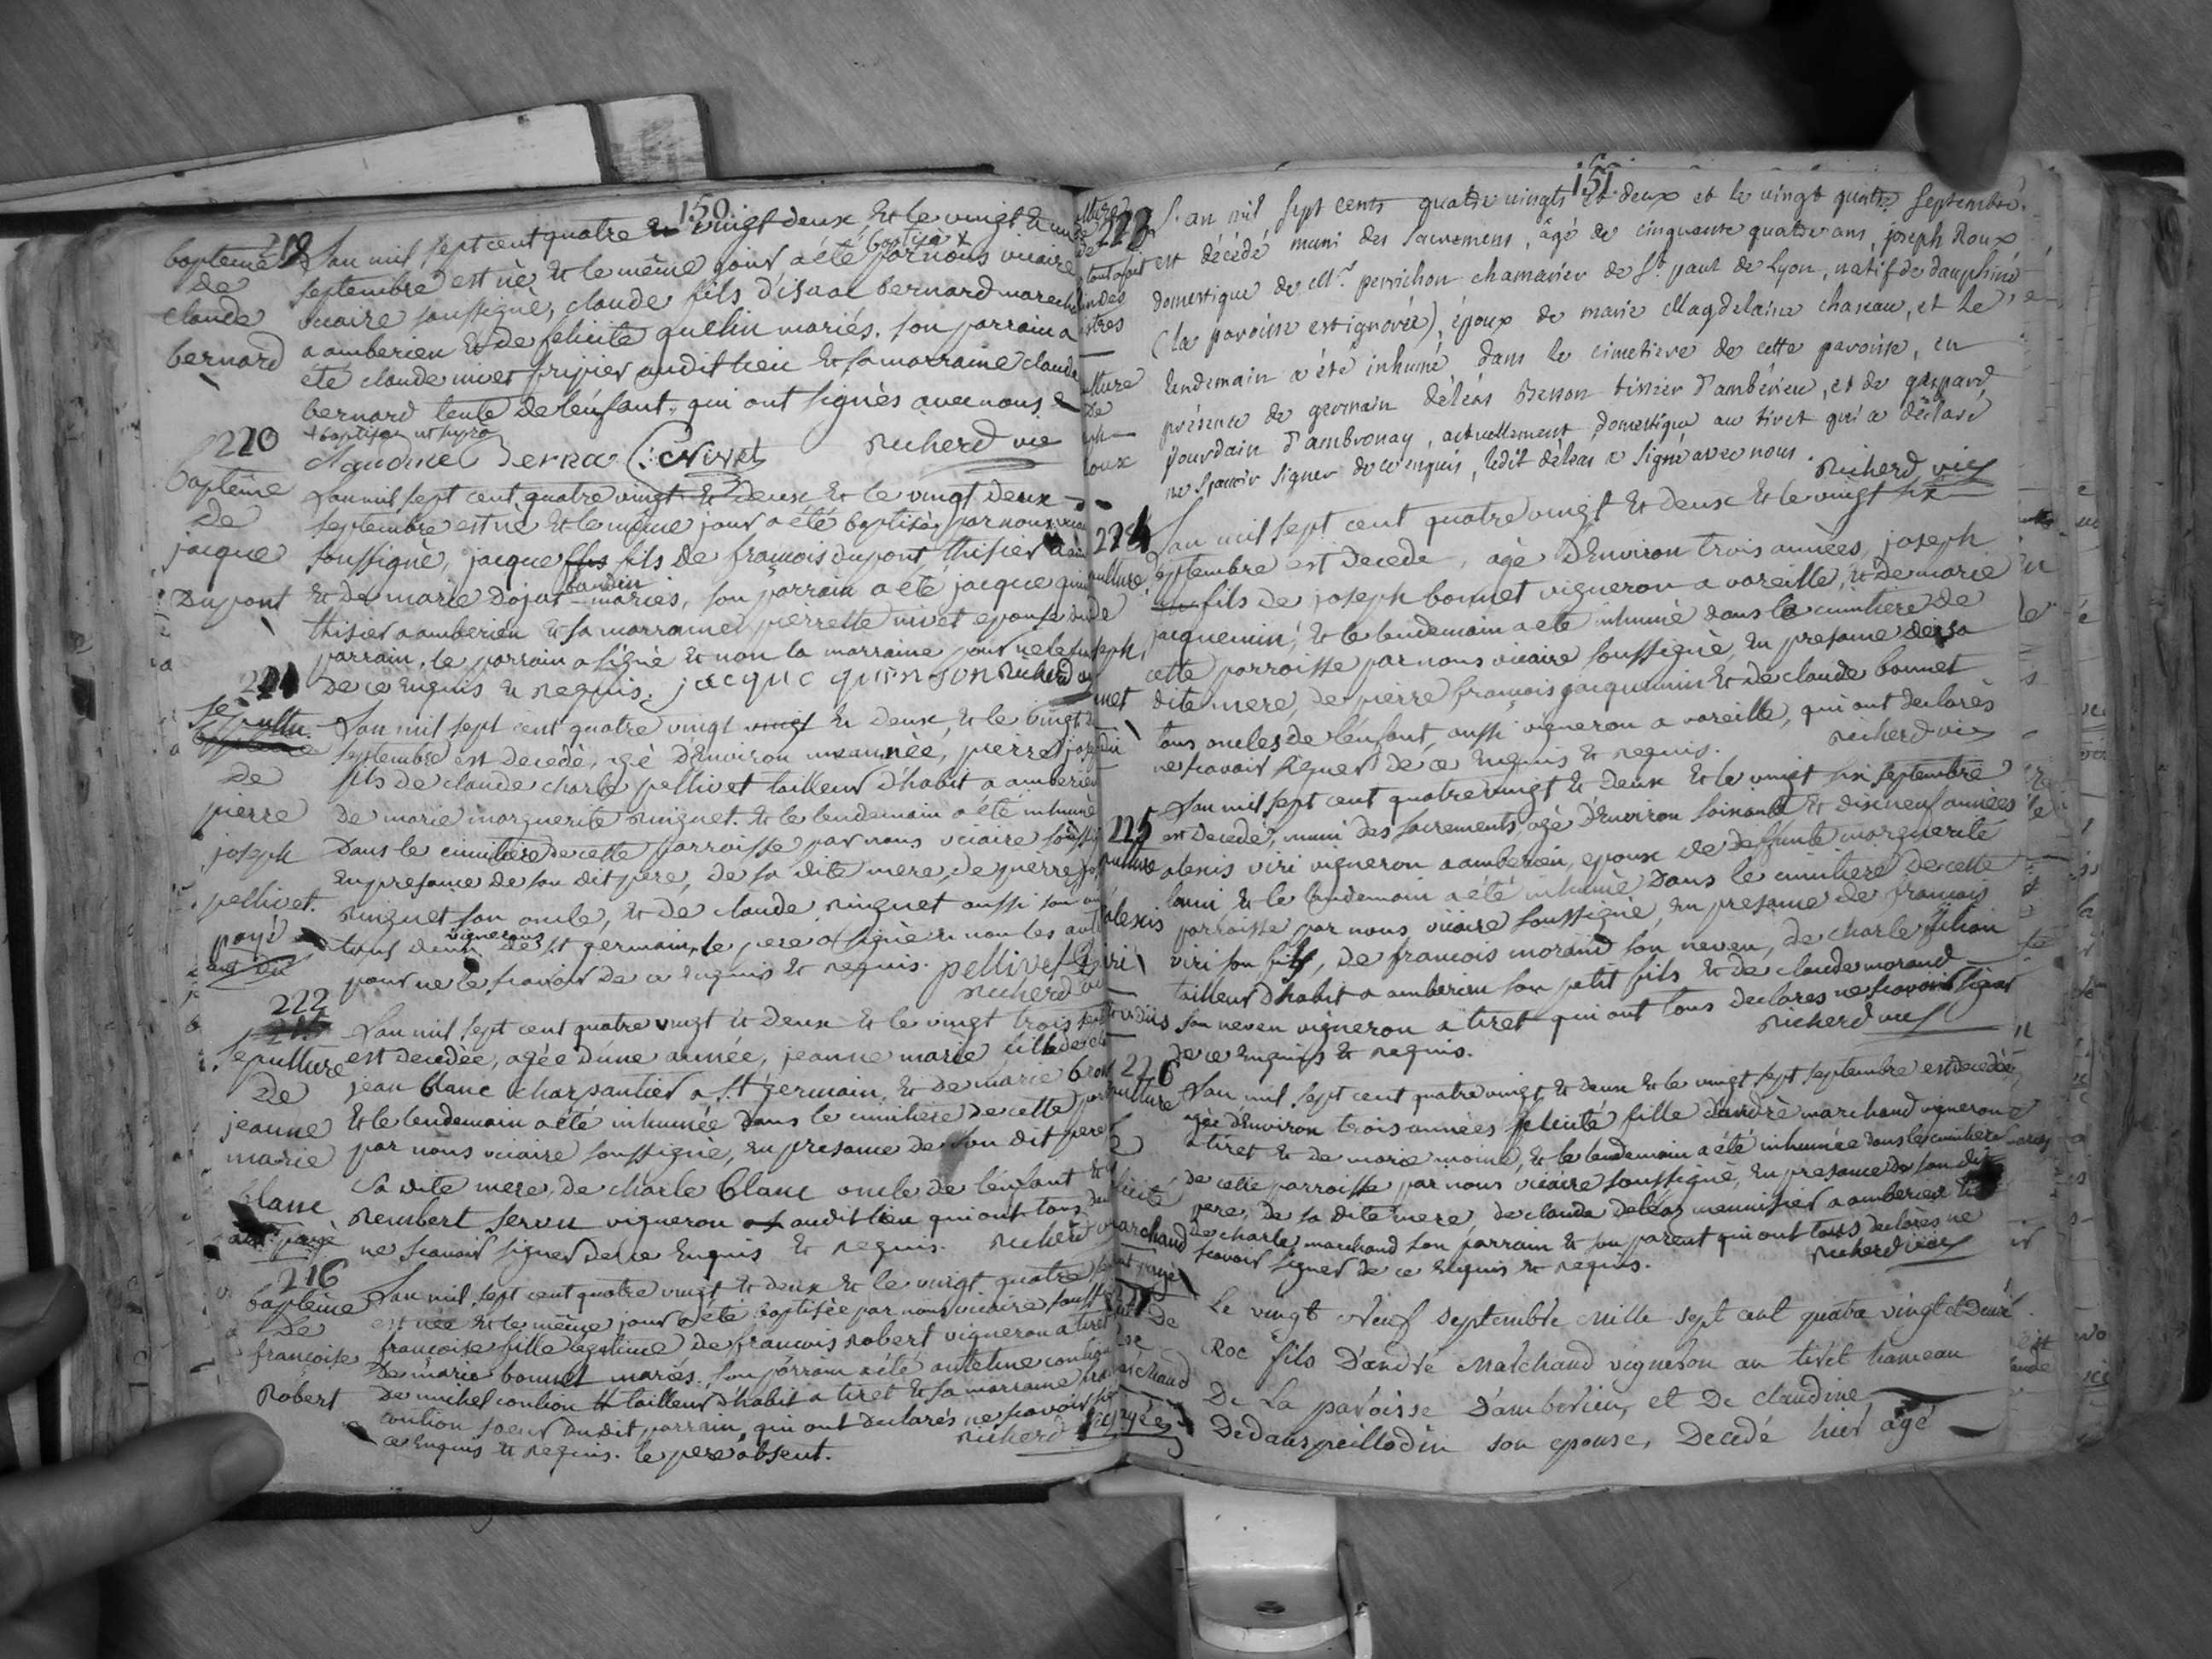 150
baptême
de
claude
bernard
L'an mil sept cent quatre vingt deux, et le vingt et un
septembre est nè et le même jour a été baptisè x par nous vicaire
vicaire soussignè, claude fils d'isaac bernard marechal
a amberieu et de felicité quelin mariés. son parrain a
été claude nivet fripier audit lieu et sa marraine claude
bernard tente de l'enfant, qui ont signès avec nous
+ baptisé
claudine Berna C: Nivet Richerd vic
220
baptême
de
jacque
Dupont
L'an mil sept cent quatre vingt et deux et le vingt deux
septembre est nè et le même jour a été baptisè par nous
soussignè, jacque fils de francois dupont, thisier a
et de marie dojat mariés, son parrain a été jacque
thisier a amberieu et sa marraine pierrette nivet epouse du
parrain, le parrain a signè et non la marraine pour ne le
de ce enquis et requis. jacque quinson Richerd
221
sepultu
de
pierre
joseph
pellivet.
payé
L'an mil sept cent quatre vingt et deux, et le vingt
septembre est decedè, agè d'environ une annèe, pierre
fils de claude charle pellivet tailleur d'habit a amberieu
de marie marguerite ringuet. et le lendemain a été inhumè
dans le cimitiere de cette parroisse par nous vicaire
en presance de son dit pere, de sa dite mere, de pierre
ringuet son oncle, et de claude ringuet aussi son
tous deux vignerons de st germain, le pere a signè et non les
pour ne le scavoir de ce enquis et requis. pellivet
Richerd
222
sepulture
de
jeanne
marie
blanc
payé
L'an mil sept cent quatre vingt et deux et le vingt trois
est decedèe, agèe d'une annèe, jeanne marie fille de
jean blanc charpantier a st germain et de marie
et le lendemain a été inhumèe dans le cimitiere de cette
par nous vicaire soussignè, en presance de son dit pere
sa dite mere, de charle blanc oncle de l'enfant et
Rembert servu vigneron audit lieu qui ont tous
ne scavoir signer de ce enquis et requis. Richerd
216
baptême
de
françoise
Robert
L'an mil sept cent quatre vingt et deux et le vingt quatre
est nèe et le même jour a été baptisèe par nous vicaire
françoise fille legitime de francois Robert vigneron a tiret
de marie bonnet mariés, son parrain a été antelme
de michel coulion tailleur d'habit a tiret et sa marraine
coulion soeur du dit parrain, qui ont declarés ne scavoir
ce enquis et requis. le pere absent. Richerd
151
223
L'an mil sept cents quatre vingts et deux et le vingt quatre septembre.
est décédé muni des sacremens, âgé de cinquante quatre ans, joseph Roux
domestique de Mr. perrichon chamarier de St. paul de Lyon, natif de dauphiné
(la paroisse est ignorée), époux de marie Magdelaine chaseau, et le
lendemain a été inhumé dans le cimetiere de cette paroisse, en
présence de germain déléas Besson tissier d'ambérieu, et de gaspard
jourdain d'ambronay, actuellement domestique au tiret qui a déclaré
ne sçavoir signer de ce enquis, ledit déléas a signé avec nous.
Richerd vic
224
L'an mil sept cent quatre vingt et deux et le vingt six
septembre est decede, agè d'environ trois annèes, joseph
fils de joseph bonnet vigneron a vareille, et de marie
jacquemin, et le lendemain a été inhumè dans le cimitiere de
cette parroisse par nous vicaire soussignè, en presance de sa
dite mere, de pierre francois jacquemin et de claude bonnet
tous oncles de l'enfant, aussi vigneron a vareille, qui ont declarès
ne scavoir signer de ce enquis et requis. Richerd vic
225
L'an mil sept cent quatre vingt et deux et le vingt six septembre
est decedè, muni des sacrements, agè d'environ soixante et dixneuf années
alexis viri vigneron a amberieu, epoux de deffunte marguerite
et le lendemain a été inhumè dans le cimitiere de cette
parroisse par nous vicaire soussignè, en presance de francois
viri son fils, de francois morand son neveu, de charle
tailleur d'habit a amberieu son petit fils et de claude morand
son neveu vigneron a tiret qui ont tous declares ne scavoir signer
de ce enquis et requis. Richerd vic
226
L'an mil sept cent quatre vingt et deux et le vingt sept septembre est decedèe,
agèe d'environ trois annèes felicité fille d'andrè marchand vigneron
a tiret et de marie moine, et le lendemain a été inhumèe dans le cimitiere
de cette parroisse par nous vicaire soussignè, en presance de son dit
pere, de sa dite mere, de claude deléaz menuisier a amberieu et
de charle marchand son parrain et son parent qui ont tous declarès ne
scavoir signer de ce enquis et requis. Richerd vic
Le vingt Neuf septembre Mille sept cent quatre vingt et deux
Roc fils D'andré Marchand vigneron au tiret hameau
De La paroisse D'amberieu, et De claudine
Dedans peillodin son epouse, Decedé hier agé